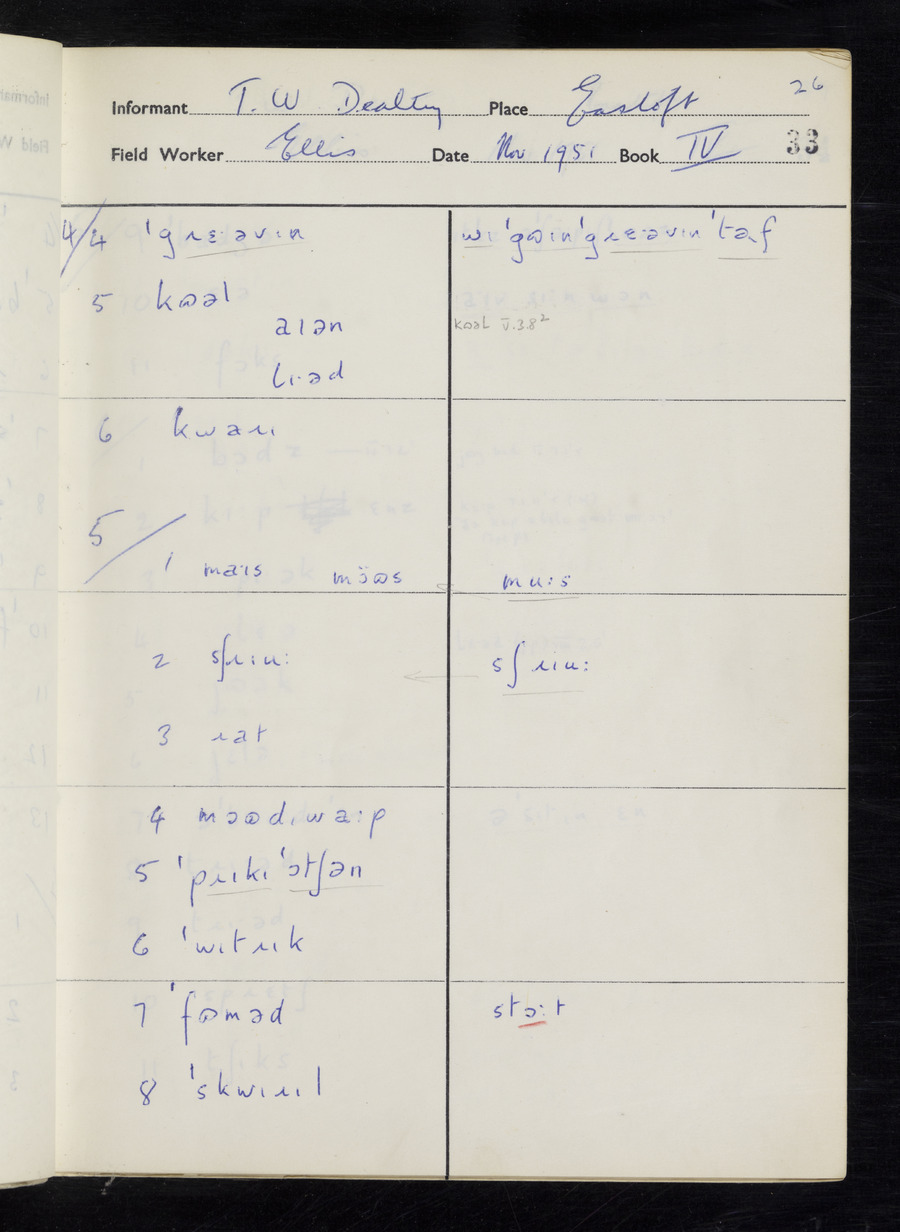 26
Informant T. W Dealtry Place Eastoft
Field Worker Ellis Date Nov 1951 Book IV 33
4/4 ˈgɹɛ·əvɪn wɪˈgɷɪnˈgɹɛ·əvɪnˈtɷf
5 kɷəl
aɪən kɷəl V.3.8²
lɪ·əd
6 kwaɹɪ
5/
1 maɪs mɔ̈ɷs mu:s
2 sʃɹɪu: sʃɹɪu:
3 ɹat
4 mɔɷdɪwa:p
5 ˈpɹɪkɪˈɔtʃən
6 ˈwɪtɹɪk
7 ˈfɷməd stɔ:t
8 ˈskwɪɹɪl